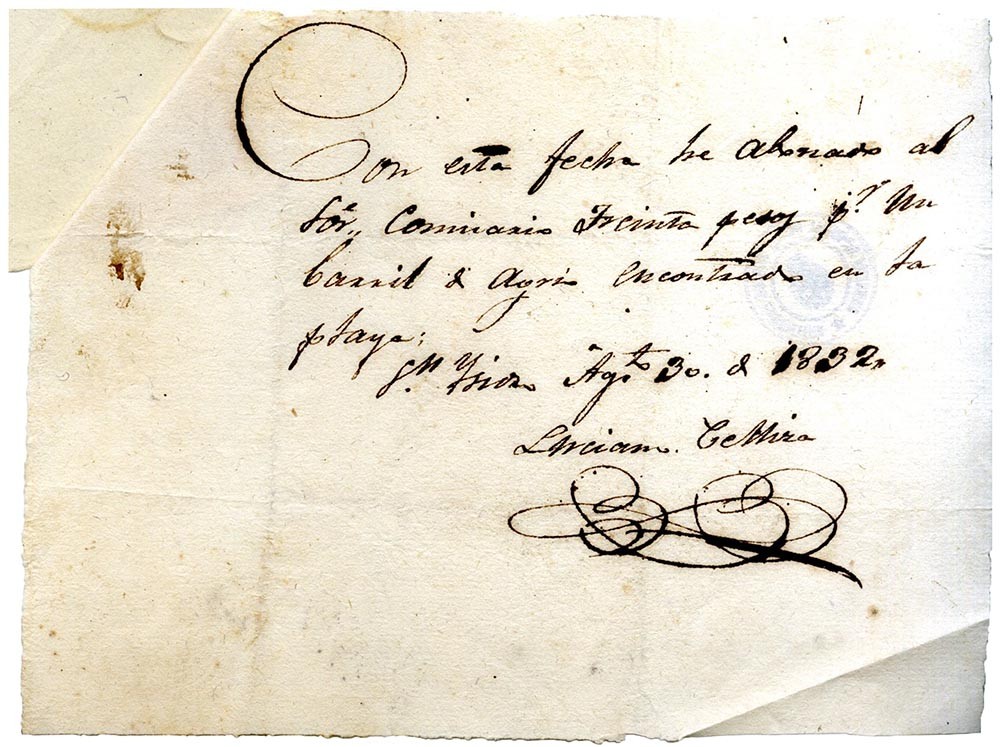 Con esta fecha he abonado al
Sor,, Comisario Treinta pesos p.r Un
barril d Agrio encontrado en la
playa;
Sn Ysidro Agto 30. d 1832,,
Luciano